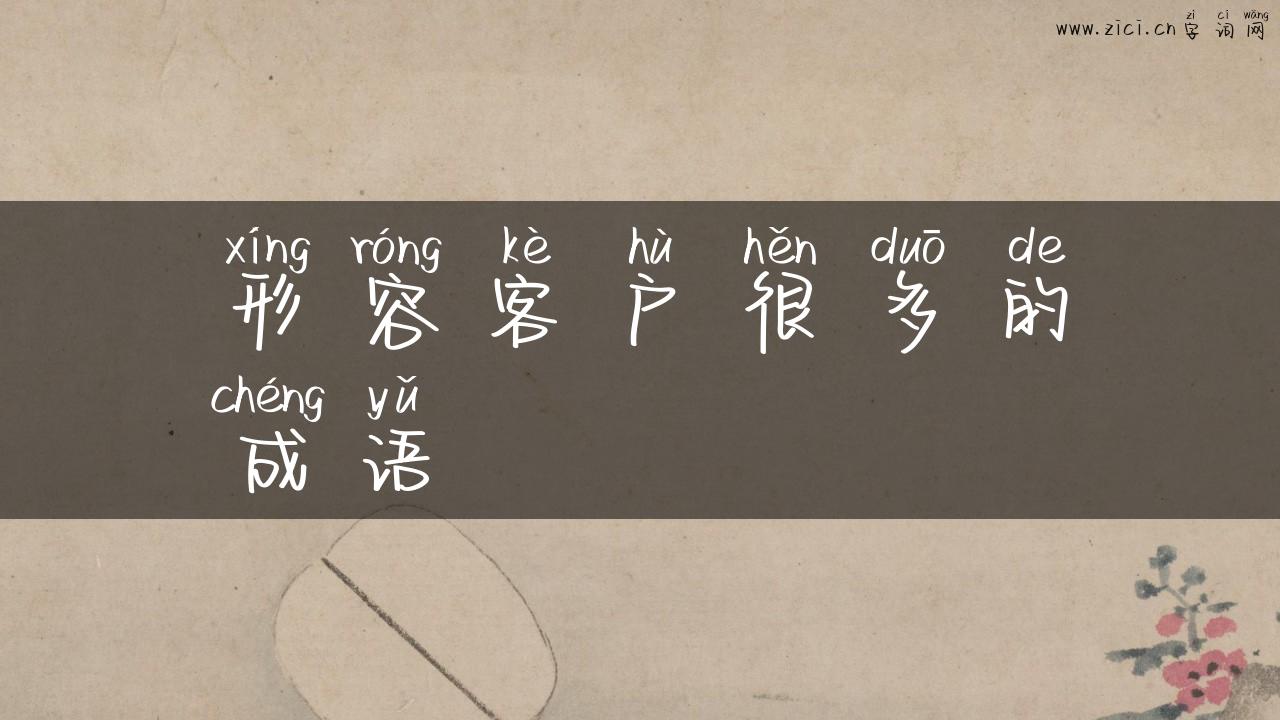 zì cí wǎng
www.zici.cn 字词网
xíng róng kè hù hěn duō de
形容客户很多的
chéng yǔ
成语